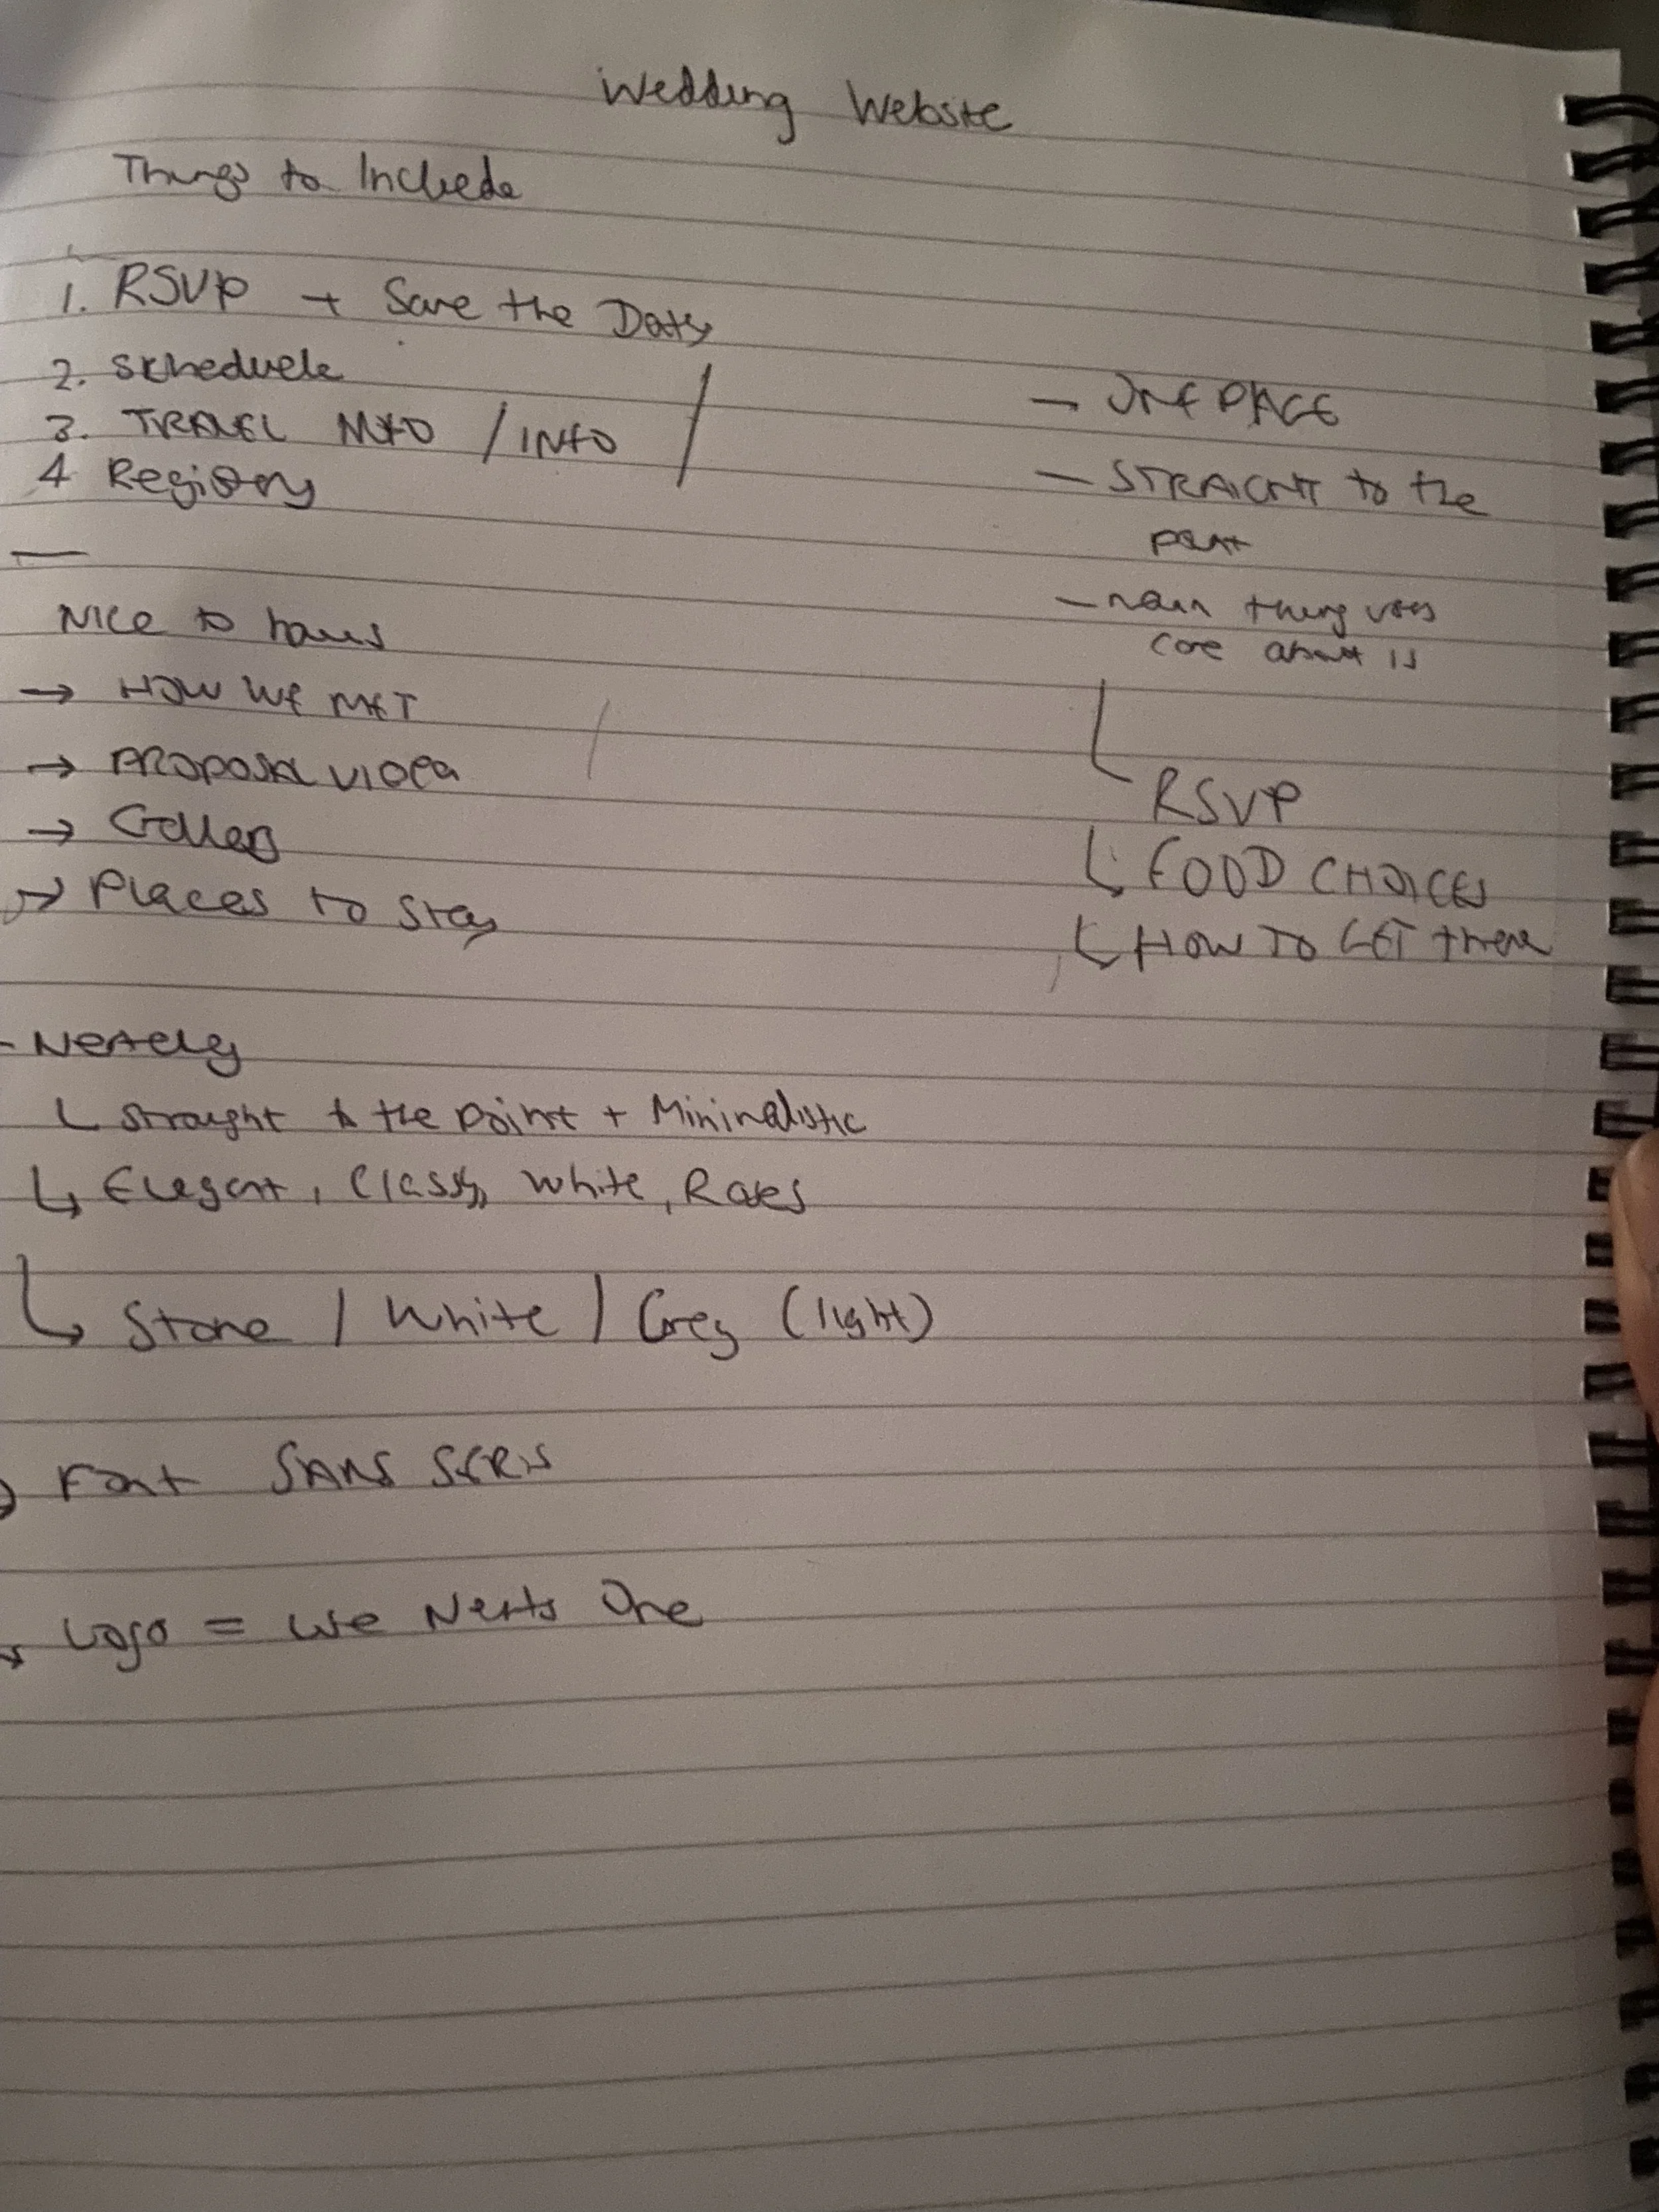 Wedding Website
Things to Include
1. RSVP + Save the Date
2. Schedule
3. TRAVEL INFO / INFO
4 Registry
Nice to haves
→ HOW WE MET
→ PROPOSAL VIDEO
→ Gallery
→ Places to stay
- ONE PAGE
- STRAIGHT to the
point
- main thing
care about is
RSVP
FOOD CHOICES
HOW TO GET there
- 
Straight to the point + Minimalistic
Elegant, Classy, White, Roses
Stone / White / Grey (light)
Font SANS SERIF
Logo = We One